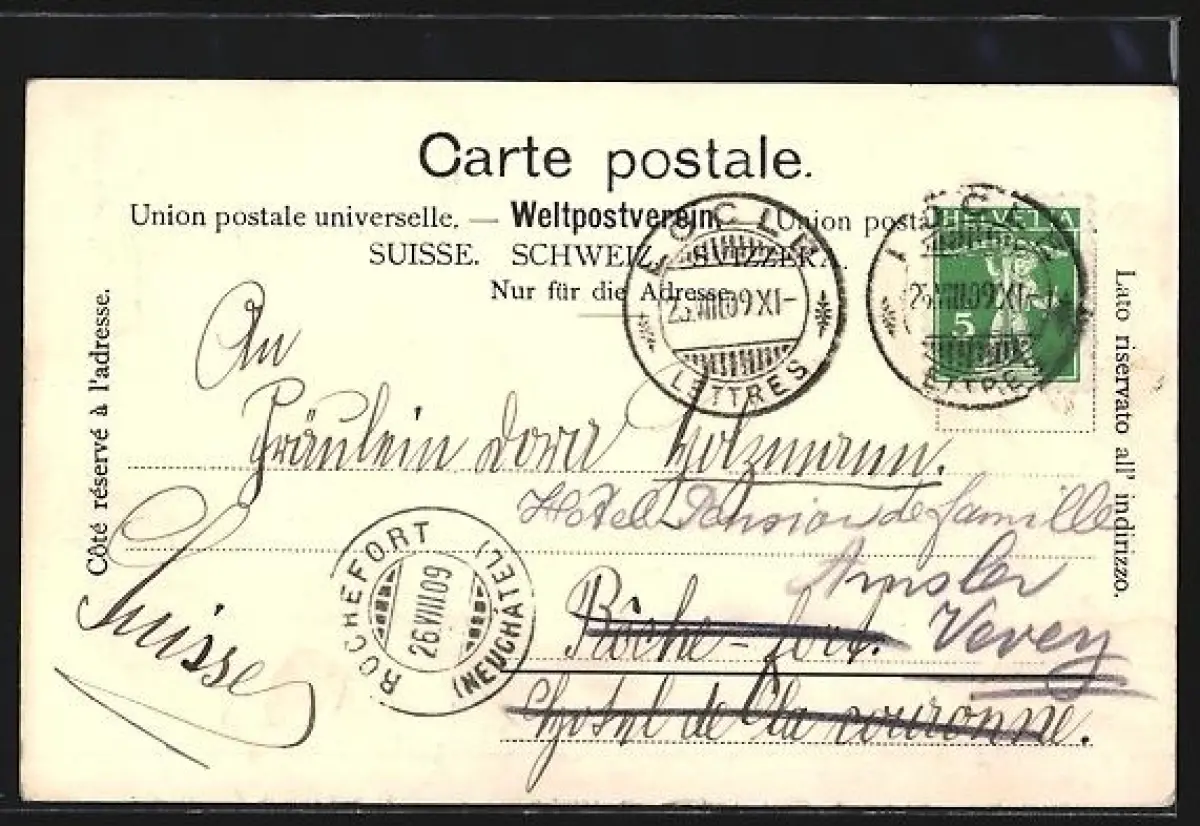 Carte postale.
Union postale universelle. — Weltpostverein. Union postal
SUISSE. SCHWEIZ. SVIZZERA.
Nur für die Adresse.
LOCLE
25.VIII.09 XI-
LETTRES
LOCLE
25.VIII.09 XI-
LETTRES
HELVETIA
5
Côté réservé à l'adresse.
Lato riservato all' indirizzo.
An
Fräulein Dora Holzmann.
Hotel Pension de famille
Amsler
Rôche-fort. Vevey
Hotel de la couronne.
Suisse
ROCHEFORT
26.VIII.09
(NEUCHÂTEL)